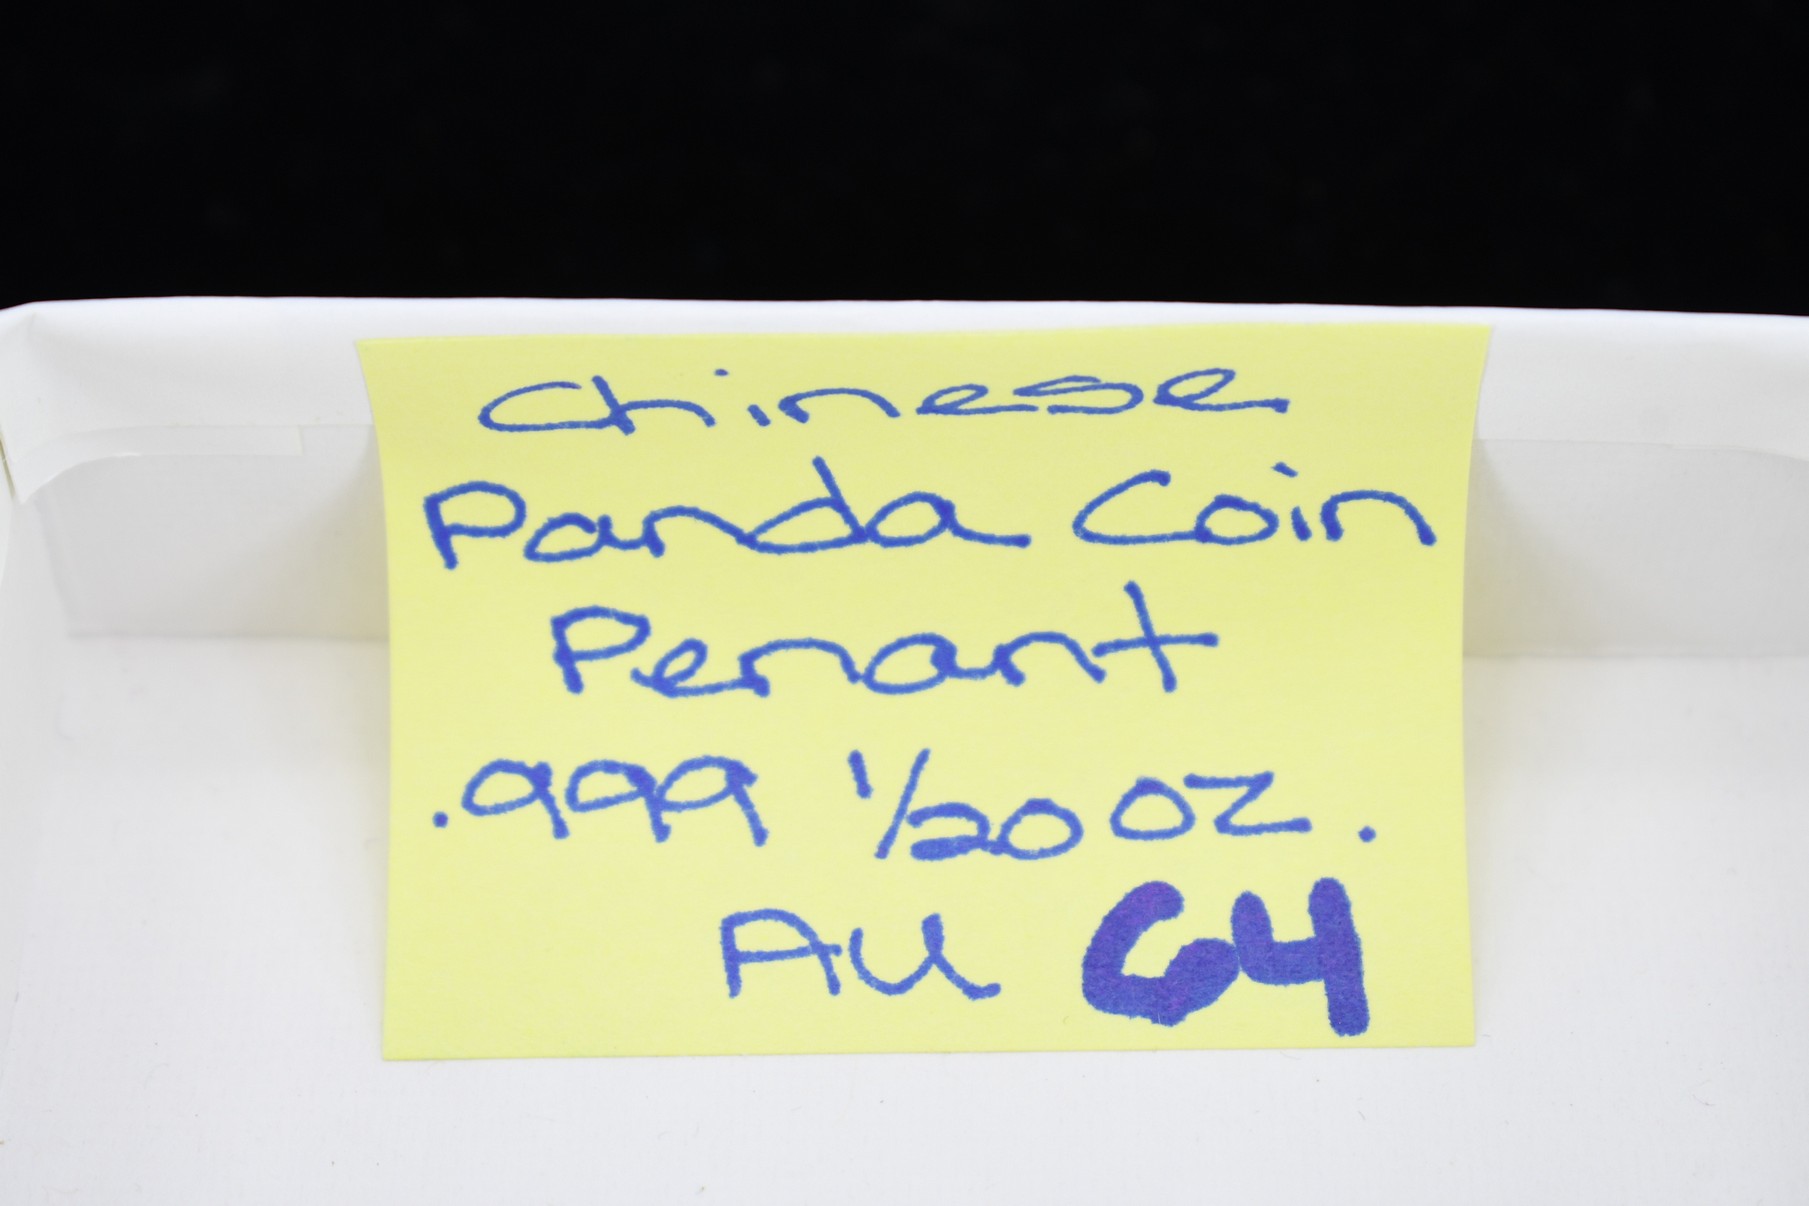 Chinese
Panda Coin
Penant
.999 1/20 oz.
Au 64